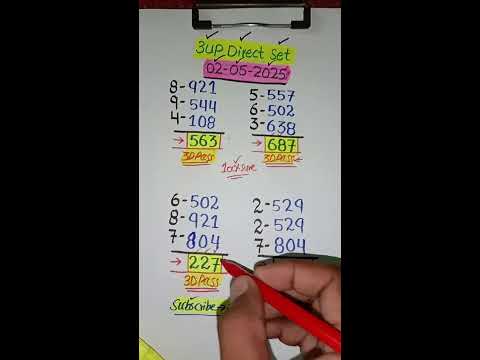 3up Direct Set
02-05-2025
8-921
9-544
4-108
→ 563
3D Pass
5-557
6-502
3-638
→ 687
3D Pass
100% Sure
6-502
8-921
7-804
→ 227
3D Pass
2-529
2-529
7-804
Subscribe→